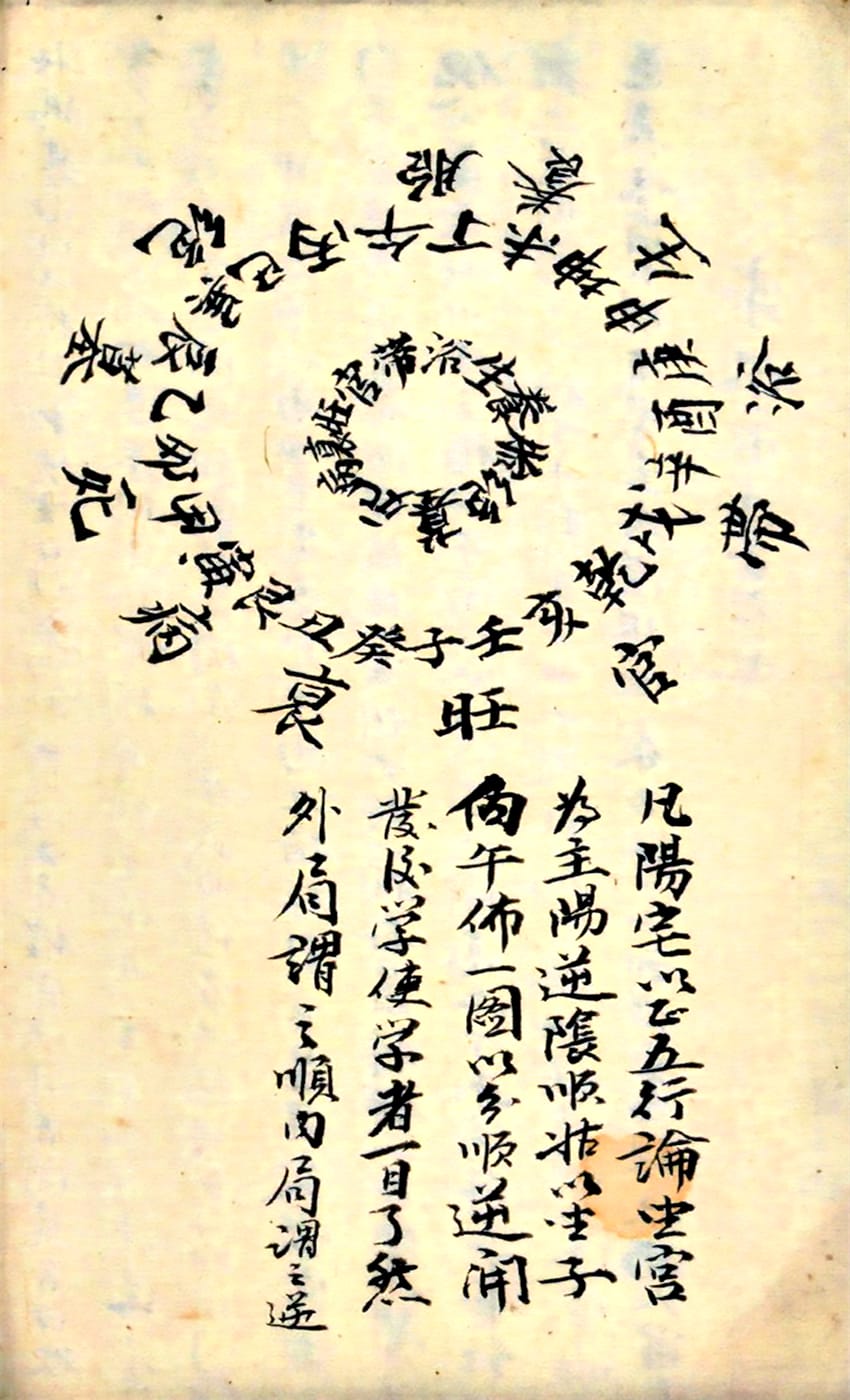 胎養生浴帶官旺衰病死墓絕
丙午丁未坤申庚酉辛戌乾亥壬子癸丑艮寅甲卯乙辰巽巳
帶浴生養胎絕墓死病衰旺官
凡陽宅以正五行論坐宮
為主陽逆陰順姑以坐子
向午佈一图以分順逆開
發後学使学者一目了然
外局謂之順內局謂之逆